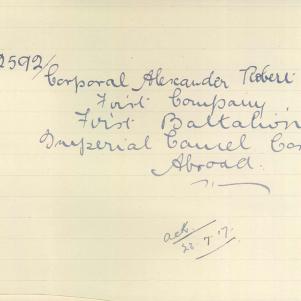 2592/
Corporal Alexander Robert
First Company
First Battalion
Imperial Camel Co
Abroad.
ack.
23.7.17.